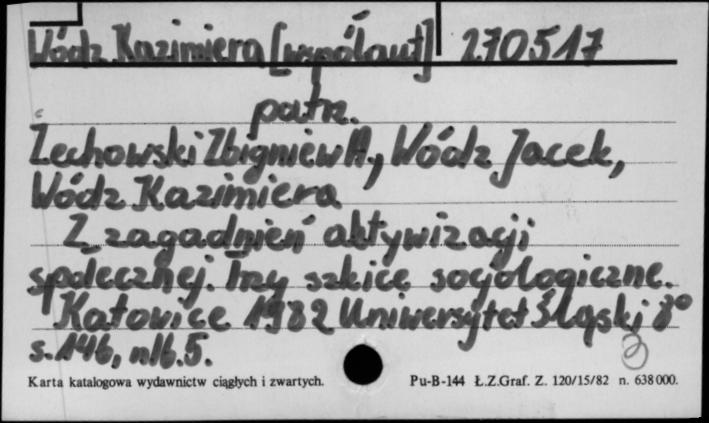 Wódz Kazimiera [współaut] 270517
patrz.
Zechowski Zbigniew A., Wódz Jacek,
Wódz Kazimiera
Z zagadnień aktywizacji
społecznej. Trzy szkice socjologiczne.
Katowice 1982 Uniwersytet Śląski 8°
s. 146, nlb. 5.
Karta katalogowa wydawnictw ciągłych i zwartych. Pu-B-144 Ł.Z.Graf. Z. 120/15/82 n. 638000.